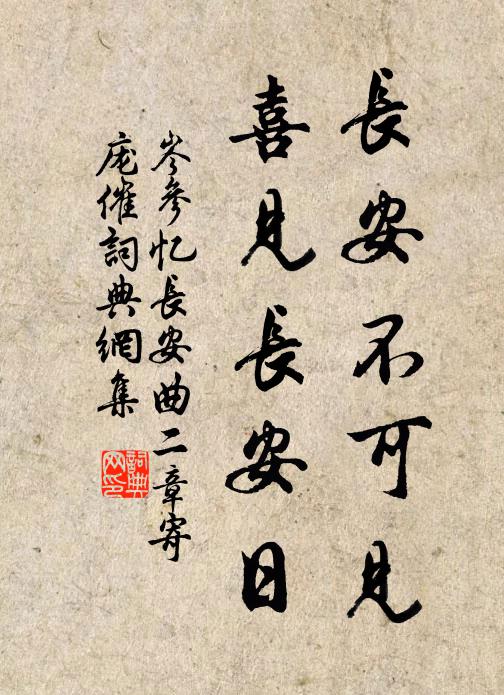 長安不可見
喜見長安日
岑參忆長安曲二章寄
庞傕詞典網集
詞典網印